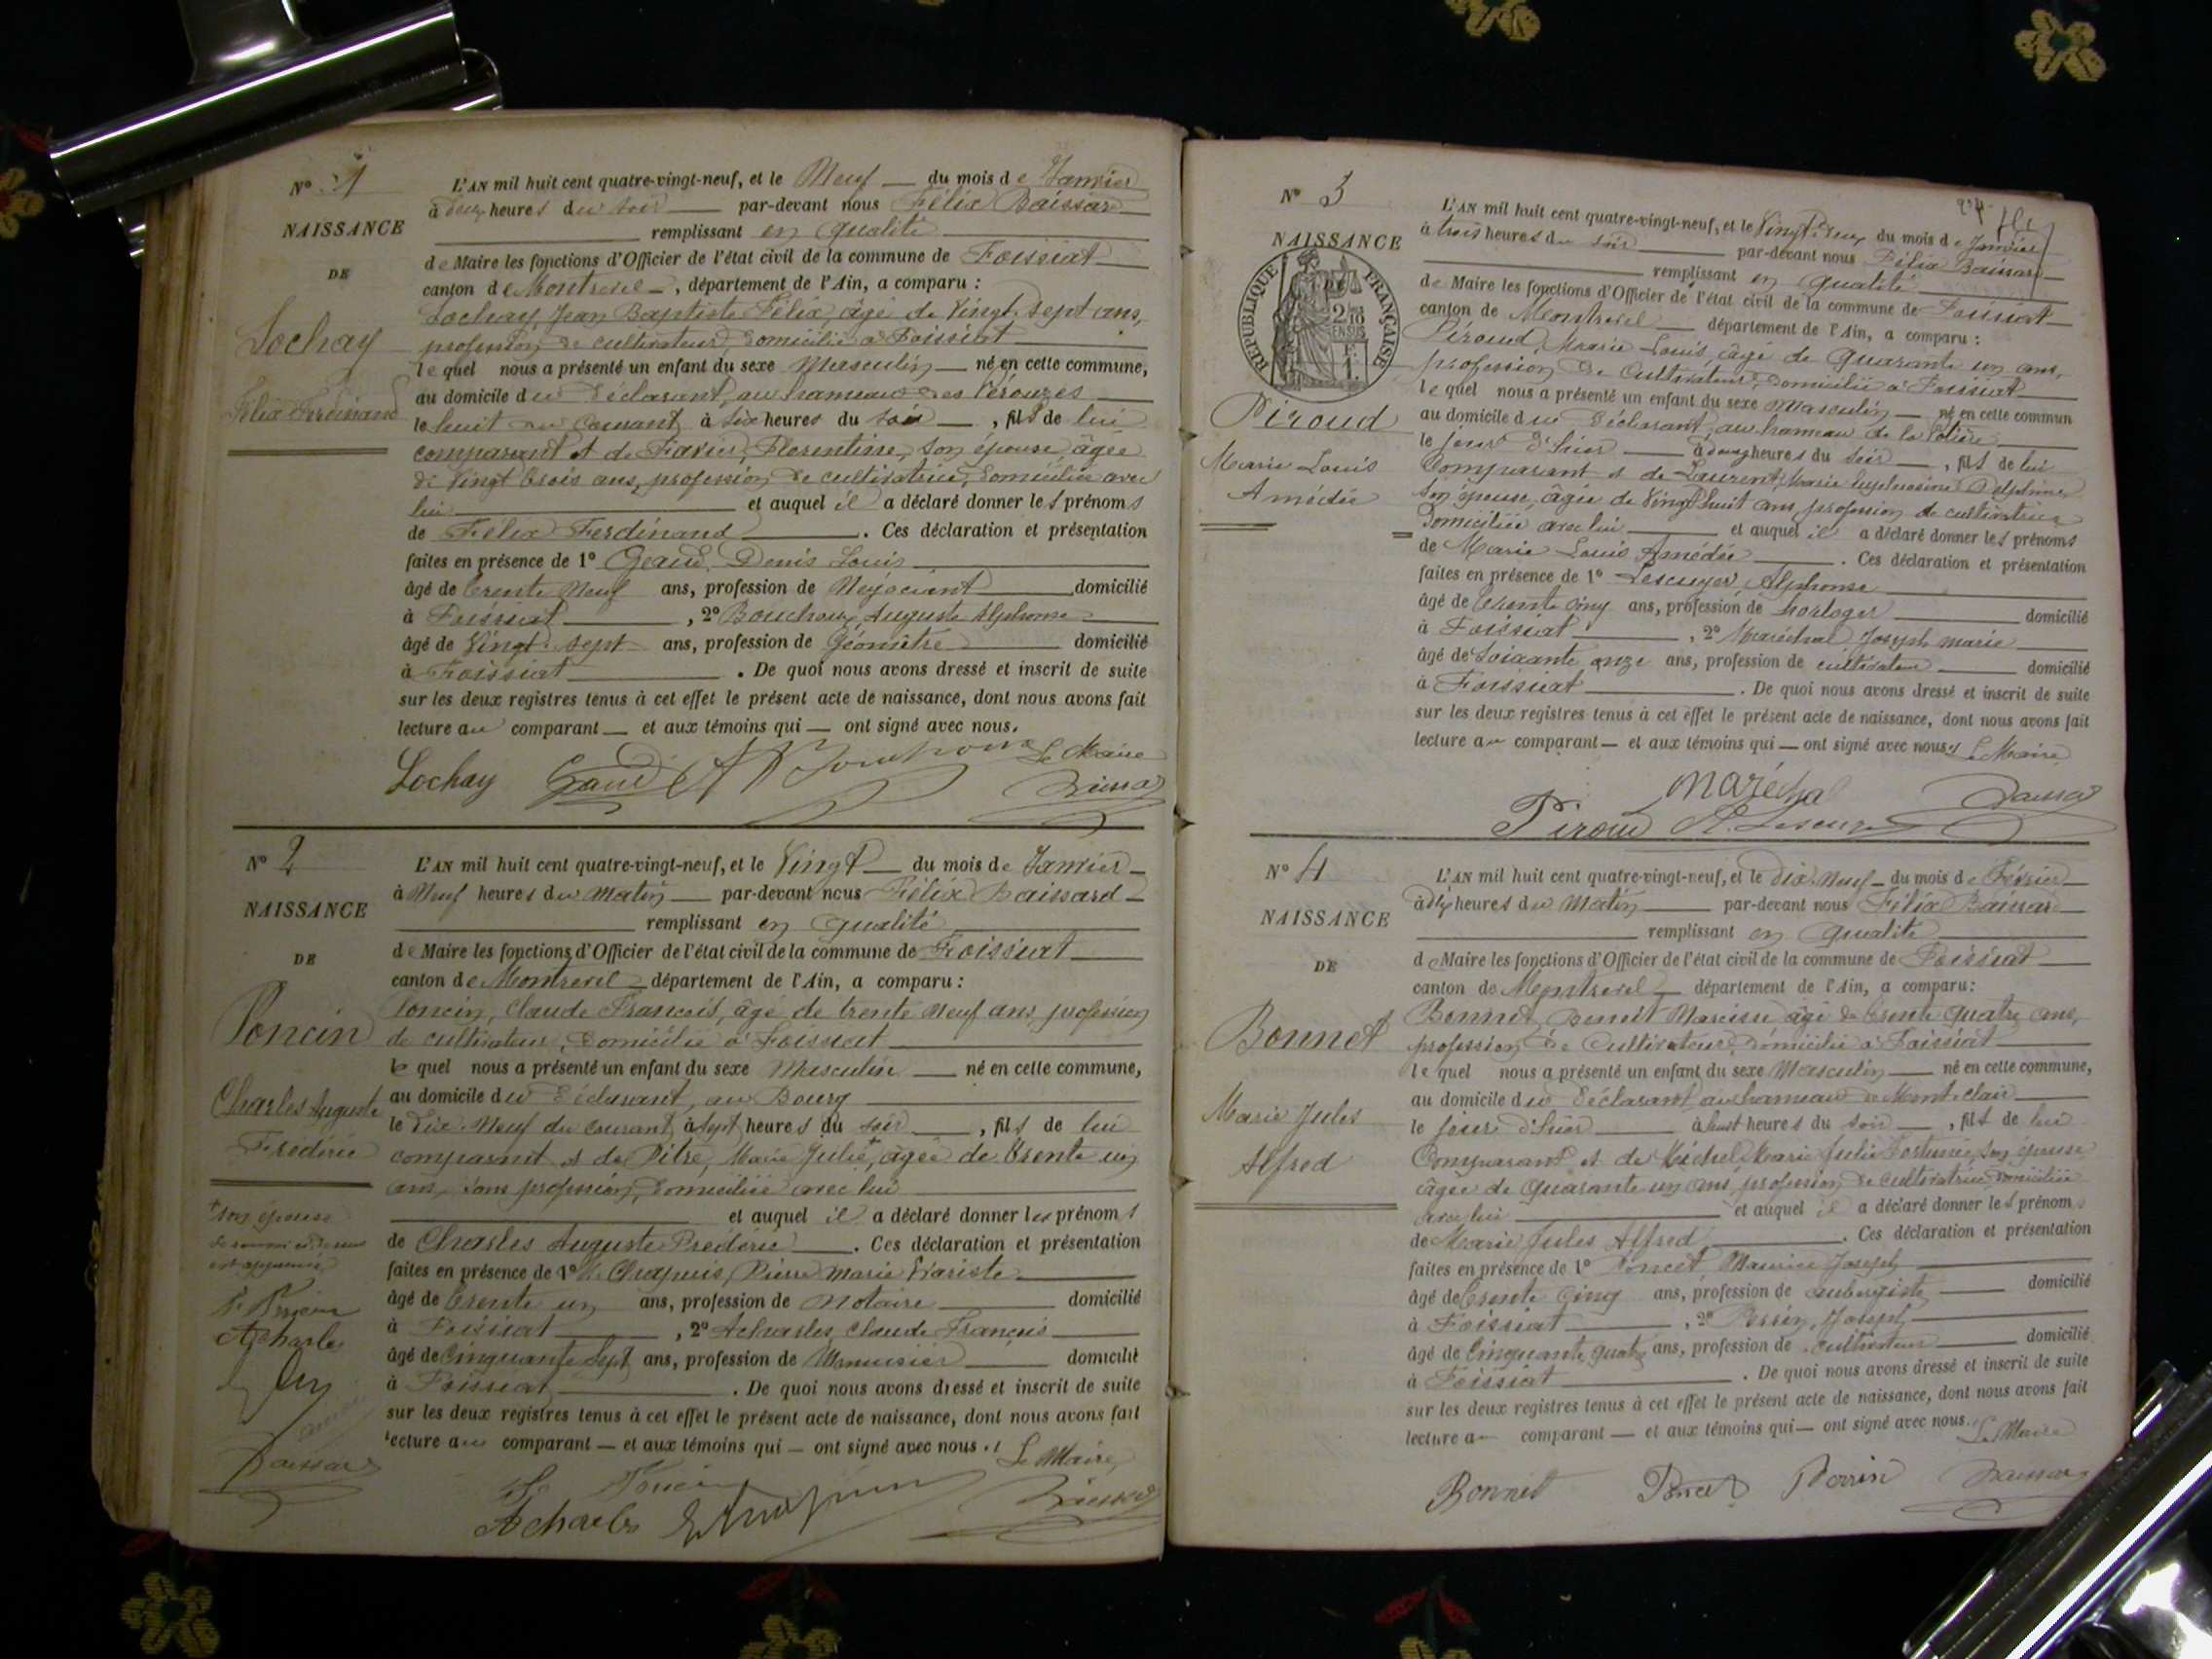 N° 1
NAISSANCE
DE
Lochay
Félix Ferdinand
L'AN mil huit cent quatre-vingt-neuf, et le Neuf du mois de Janvier
à heures du soir par-devant nous Félix Baissard
remplissant en qualité
de Maire les fonctions d'Officier de l'état civil de la commune de Foissiat
canton de Montrevel, département de l'Ain, a comparu :
Lochay, Jean Baptiste Félix, âgé de Vingt sept ans,
profession de cultivateur, domicilié à Foissiat
lequel nous a présenté un enfant du sexe Masculin né en cette commune,
au domicile du déclarant, au hameau des
le huit du Courant à six heures du soir, fils de lui
comparant et de Florentine, son épouse, âgée
de Vingt trois ans, profession de cultivatrice, domiciliée avec
lui et auquel il a déclaré donner les prénoms
de Félix Ferdinand. Ces déclaration et présentation
faites en présence de 1° Denis Louis
âgé de trente Neuf ans, profession de Négociant domicilié
à Foissiat, 2° Bouchoux, Auguste Alphonse
âgé de Vingt sept ans, profession de Géomètre domicilié
à Foissiat. De quoi nous avons dressé et inscrit de suite
sur les deux registres tenus à cet effet le présent acte de naissance, dont nous avons fait
lecture au comparant et aux témoins qui ont signé avec nous.
Le Maire
Lochay
N° 2
NAISSANCE
DE
Poncin
Charles Auguste
Frédéric
L'AN mil huit cent quatre-vingt-neuf, et le Vingt du mois de Janvier
à Neuf heures du Matin par-devant nous Félix Baissard
remplissant en qualité
de Maire les fonctions d'Officier de l'état civil de la commune de Foissiat
canton de Montrevel département de l'Ain, a comparu :
Poncin, Claude François, âgé de trente Neuf ans, profession
de cultivateur, domicilié à Foissiat
le quel nous a présenté un enfant du sexe Masculin né en cette commune,
au domicile du déclarant, au Bourg
le Dix Neuf du courant, à sept heures du soir, fils de lui
comparant et de Pitre, Marie Julie, + âgée de trente un
ans, sans profession, domiciliée avec lui
et auquel il a déclaré donner les prénoms
de Charles Auguste Frédéric. Ces déclaration et présentation
faites en présence de 1° Chapuis, Pierre Marie Evariste
âgé de trente un ans, profession de Notaire domicilié
à Foissiat, 2° Acharles, Claude François
âgé de Cinquante Sept ans, profession de Menuisier domicilié
à Foissiat. De quoi nous avons dressé et inscrit de suite
sur les deux registres tenus à cet effet le présent acte de naissance, dont nous avons fait
lecture au comparant et aux témoins qui ont signé avec nous. Le Maire
+ son épouse
Acharles
Baissard
Acharles
N° 3
NAISSANCE
DE
RÉPUBLIQUE FRANÇAISE
Piroud
Marie Louis
Amédée
L'AN mil huit cent quatre-vingt-neuf, et le Vingt Deux du mois de Janvier
à trois heures du soir par-devant nous Félix Baissard
remplissant en qualité
de Maire les fonctions d'Officier de l'état civil de la commune de Foissiat
canton de Montrevel département de l'Ain, a comparu :
Piroud, Marie Louis, âgé de quarante un ans,
profession de Cultivateur, domicilié à Foissiat
le quel nous a présenté un enfant du sexe Masculin né en cette commun
au domicile du Déclarant, au hameau de la
le jour d'hier à heures du soir, fils de lui
Comparant et de Laurent, Marie Delphine
son épouse, âgée de Vingt huit ans, profession de cultivatrice
domiciliée avec lui et auquel il a déclaré donner les prénoms
de Marie Louis Amédée. Ces déclaration et présentation
faites en présence de 1° Lescuyer, Alphonse
âgé de trente cinq ans, profession de horloger domicilié
à Foissiat, 2° Maréchal Joseph Marie
âgé de Soixante onze ans, profession de cultivateur domicilié
à Foissiat. De quoi nous avons dressé et inscrit de suite
sur les deux registres tenus à cet effet le présent acte de naissance, dont nous avons fait
lecture au comparant et aux témoins qui ont signé avec nous. Le Maire
Maréchal
Piroud A. Lescuyer
N° 4
NAISSANCE
DE
Bonnet
Marie Jules
Alfred
L'AN mil huit cent quatre-vingt-neuf, et le dix Neuf du mois de Février
à dix heures du Matin par-devant nous Félix Baissard
remplissant en qualité
de Maire les fonctions d'Officier de l'état civil de la commune de Foissiat
canton de Montrevel département de l'Ain, a comparu :
Bonnet, Benoit Narcisse âgé de trente quatre ans,
profession de Cultivateur, domicilié à Foissiat
le quel nous a présenté un enfant du sexe Masculin né en cette commune,
au domicile du Déclarant, au hameau de Mont-clair
le jour d'hier à huit heures du soir, fils de lui
Comparant et de Michel Marie Julie son épouse
âgée de Quarante un ans, profession de cultivatrice, domiciliée
avec lui et auquel il a déclaré donner les prénoms
de Marie Jules Alfred. Ces déclaration et présentation
faites en présence de 1° Poncet Maurice Joseph
âgé de trente Cinq ans, profession de aubergiste domicilié
à Foissiat, 2° Perrin, Joseph,
âgé de Cinquante quatre ans, profession de cultivateur domicilié
à Foissiat. De quoi nous avons dressé et inscrit de suite
sur les deux registres tenus à cet effet le présent acte de naissance, dont nous avons fait
lecture au comparant et aux témoins qui ont signé avec nous. Le Maire
Bonnet Poncet Perrin Baissard